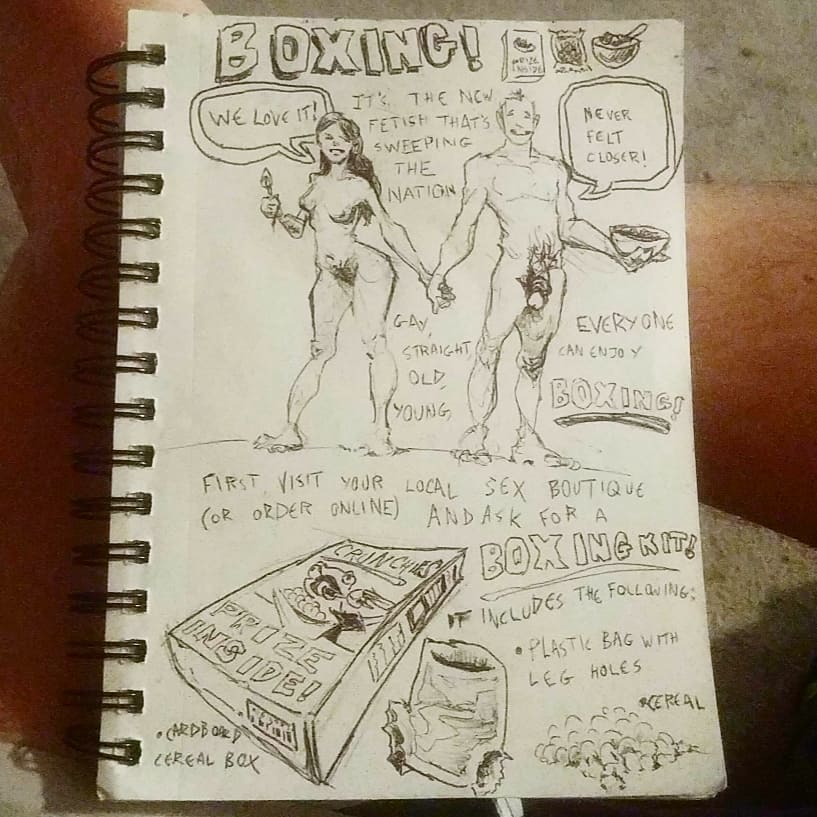 BOXING!
PRIZE
INSIDE
WE LOVE IT!
IT'S THE NEW
FETISH THAT'S
SWEEPING
THE
NATION
NEVER
FELT
CLOSER!
GAY,
STRAIGHT,
OLD,
YOUNG,
EVERYONE
CAN ENJOY
BOXING!
FIRST, VISIT YOUR LOCAL SEX BOUTIQUE
(OR ORDER ONLINE) AND ASK FOR A
BOXING KIT!
IT INCLUDES THE FOLLOWING:
CRUNCHIES
PRIZE
INSIDE!
• CARDBOARD
CEREAL BOX
• PLASTIC BAG WITH
LEG HOLES
• CEREAL